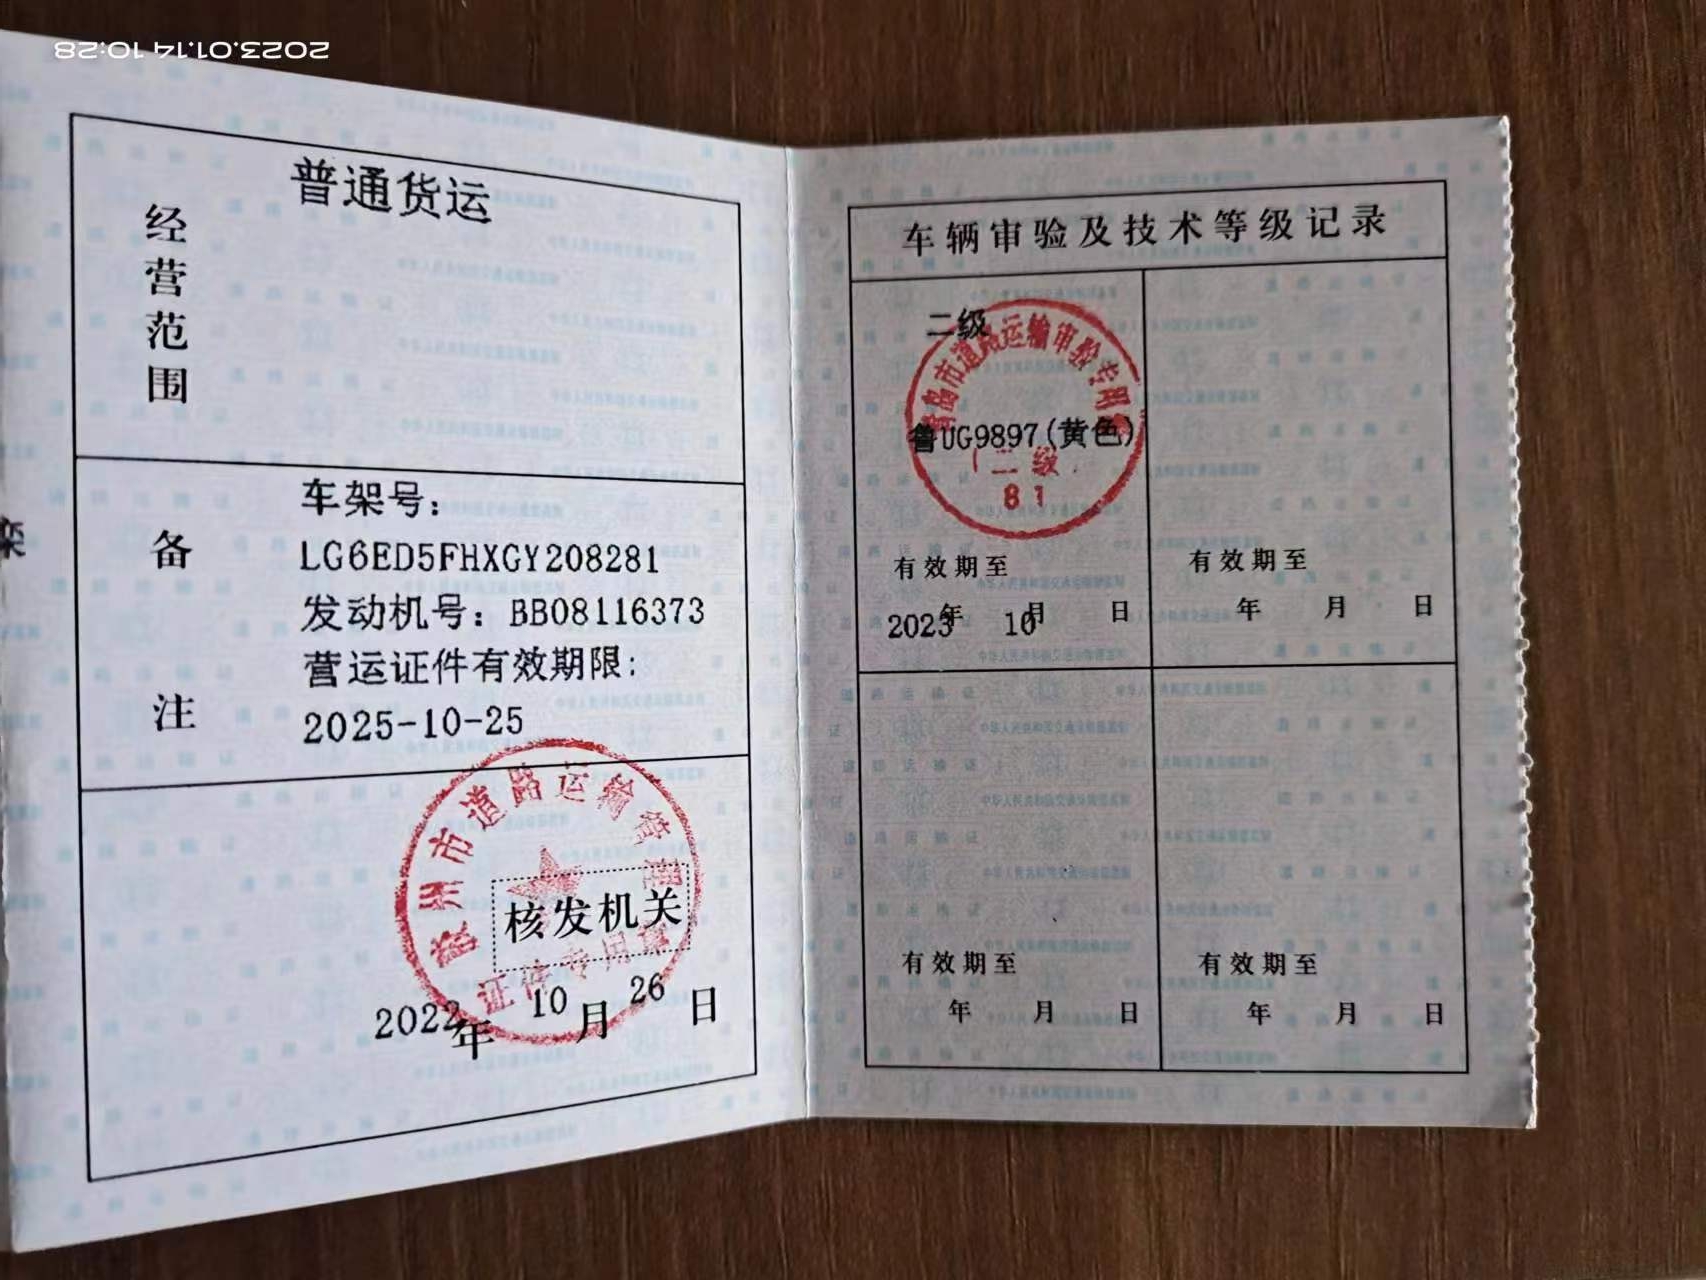 2023.01.14 10:28
经营范围
普通货运
备注
车架号:
LG6ED5FHXGY208281
发动机号: BB08116373
营运证件有效期限:
2025-10-25
胶州市道路运输管理
证件专用章
核发机关
2022年 10月 26日
车辆审验及技术等级记录
二级
青岛市道路运输审验专用章
鲁UG9897(黄色)
二级
81
有效期至
2023年 10月 日
有效期至
年 月 日
有效期至
年 月 日
有效期至
年 月 日